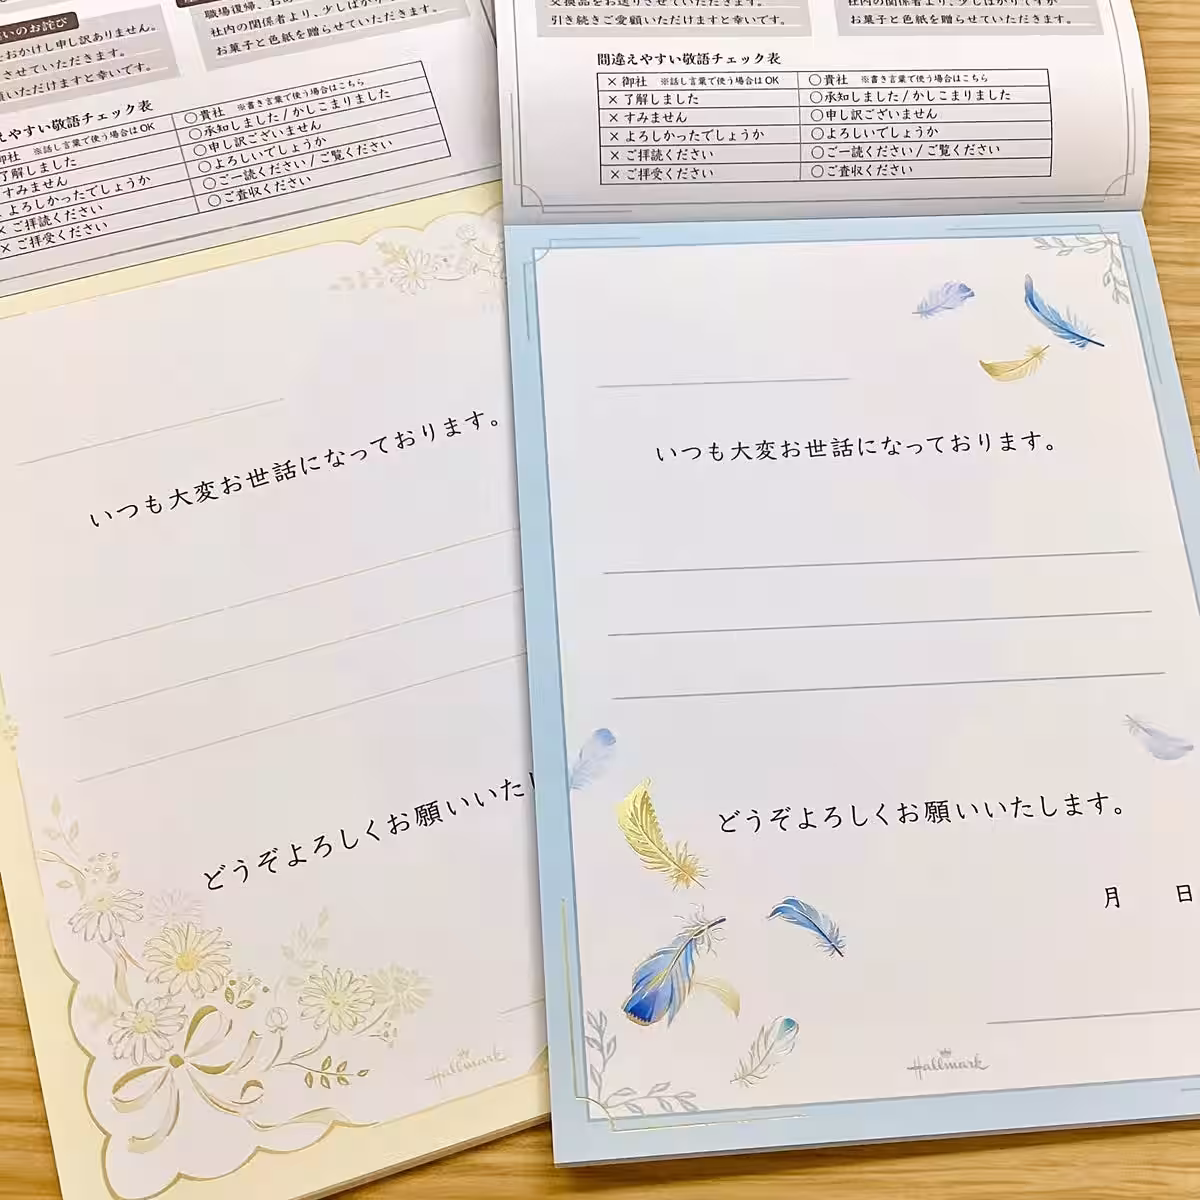 いのお詫び
おかけし申し訳ありません。
させていただきます。
いただけますと幸いです。
職場復帰、お
社内の関係者より、少しばかり
お菓子と色紙を贈らせていただきます。
えやすい敬語チェック表
御社 ※話し言葉で使う場合はOK ○貴社 ※書き言葉で使う場合はこちら
了解しました ○承知しました/かしこまりました
すみません ○申し訳ございません
よろしかったでしょうか ○よろしいでしょうか
× ご拝読ください ○ご一読ください/ご覧ください
× ご拝受ください ○ご査収ください
いつも大変お世話になっております。
どうぞよろしくお願いいたし
Hallmark
交換品をお送りさせていただきます。
引き続きご愛顧いただけますと幸いです。
社内の関係者より、少しばかりですが
お菓子と色紙を贈らせていただきます。
間違えやすい敬語チェック表
× 御社 ※話し言葉で使う場合はOK ○貴社 ※書き言葉で使う場合はこちら
× 了解しました ○承知しました/かしこまりました
× すみません ○申し訳ございません
× よろしかったでしょうか ○よろしいでしょうか
× ご拝読ください ○ご一読ください/ご覧ください
× ご拝受ください ○ご査収ください
いつも大変お世話になっております。
どうぞよろしくお願いいたします。
月 日
Hallmark